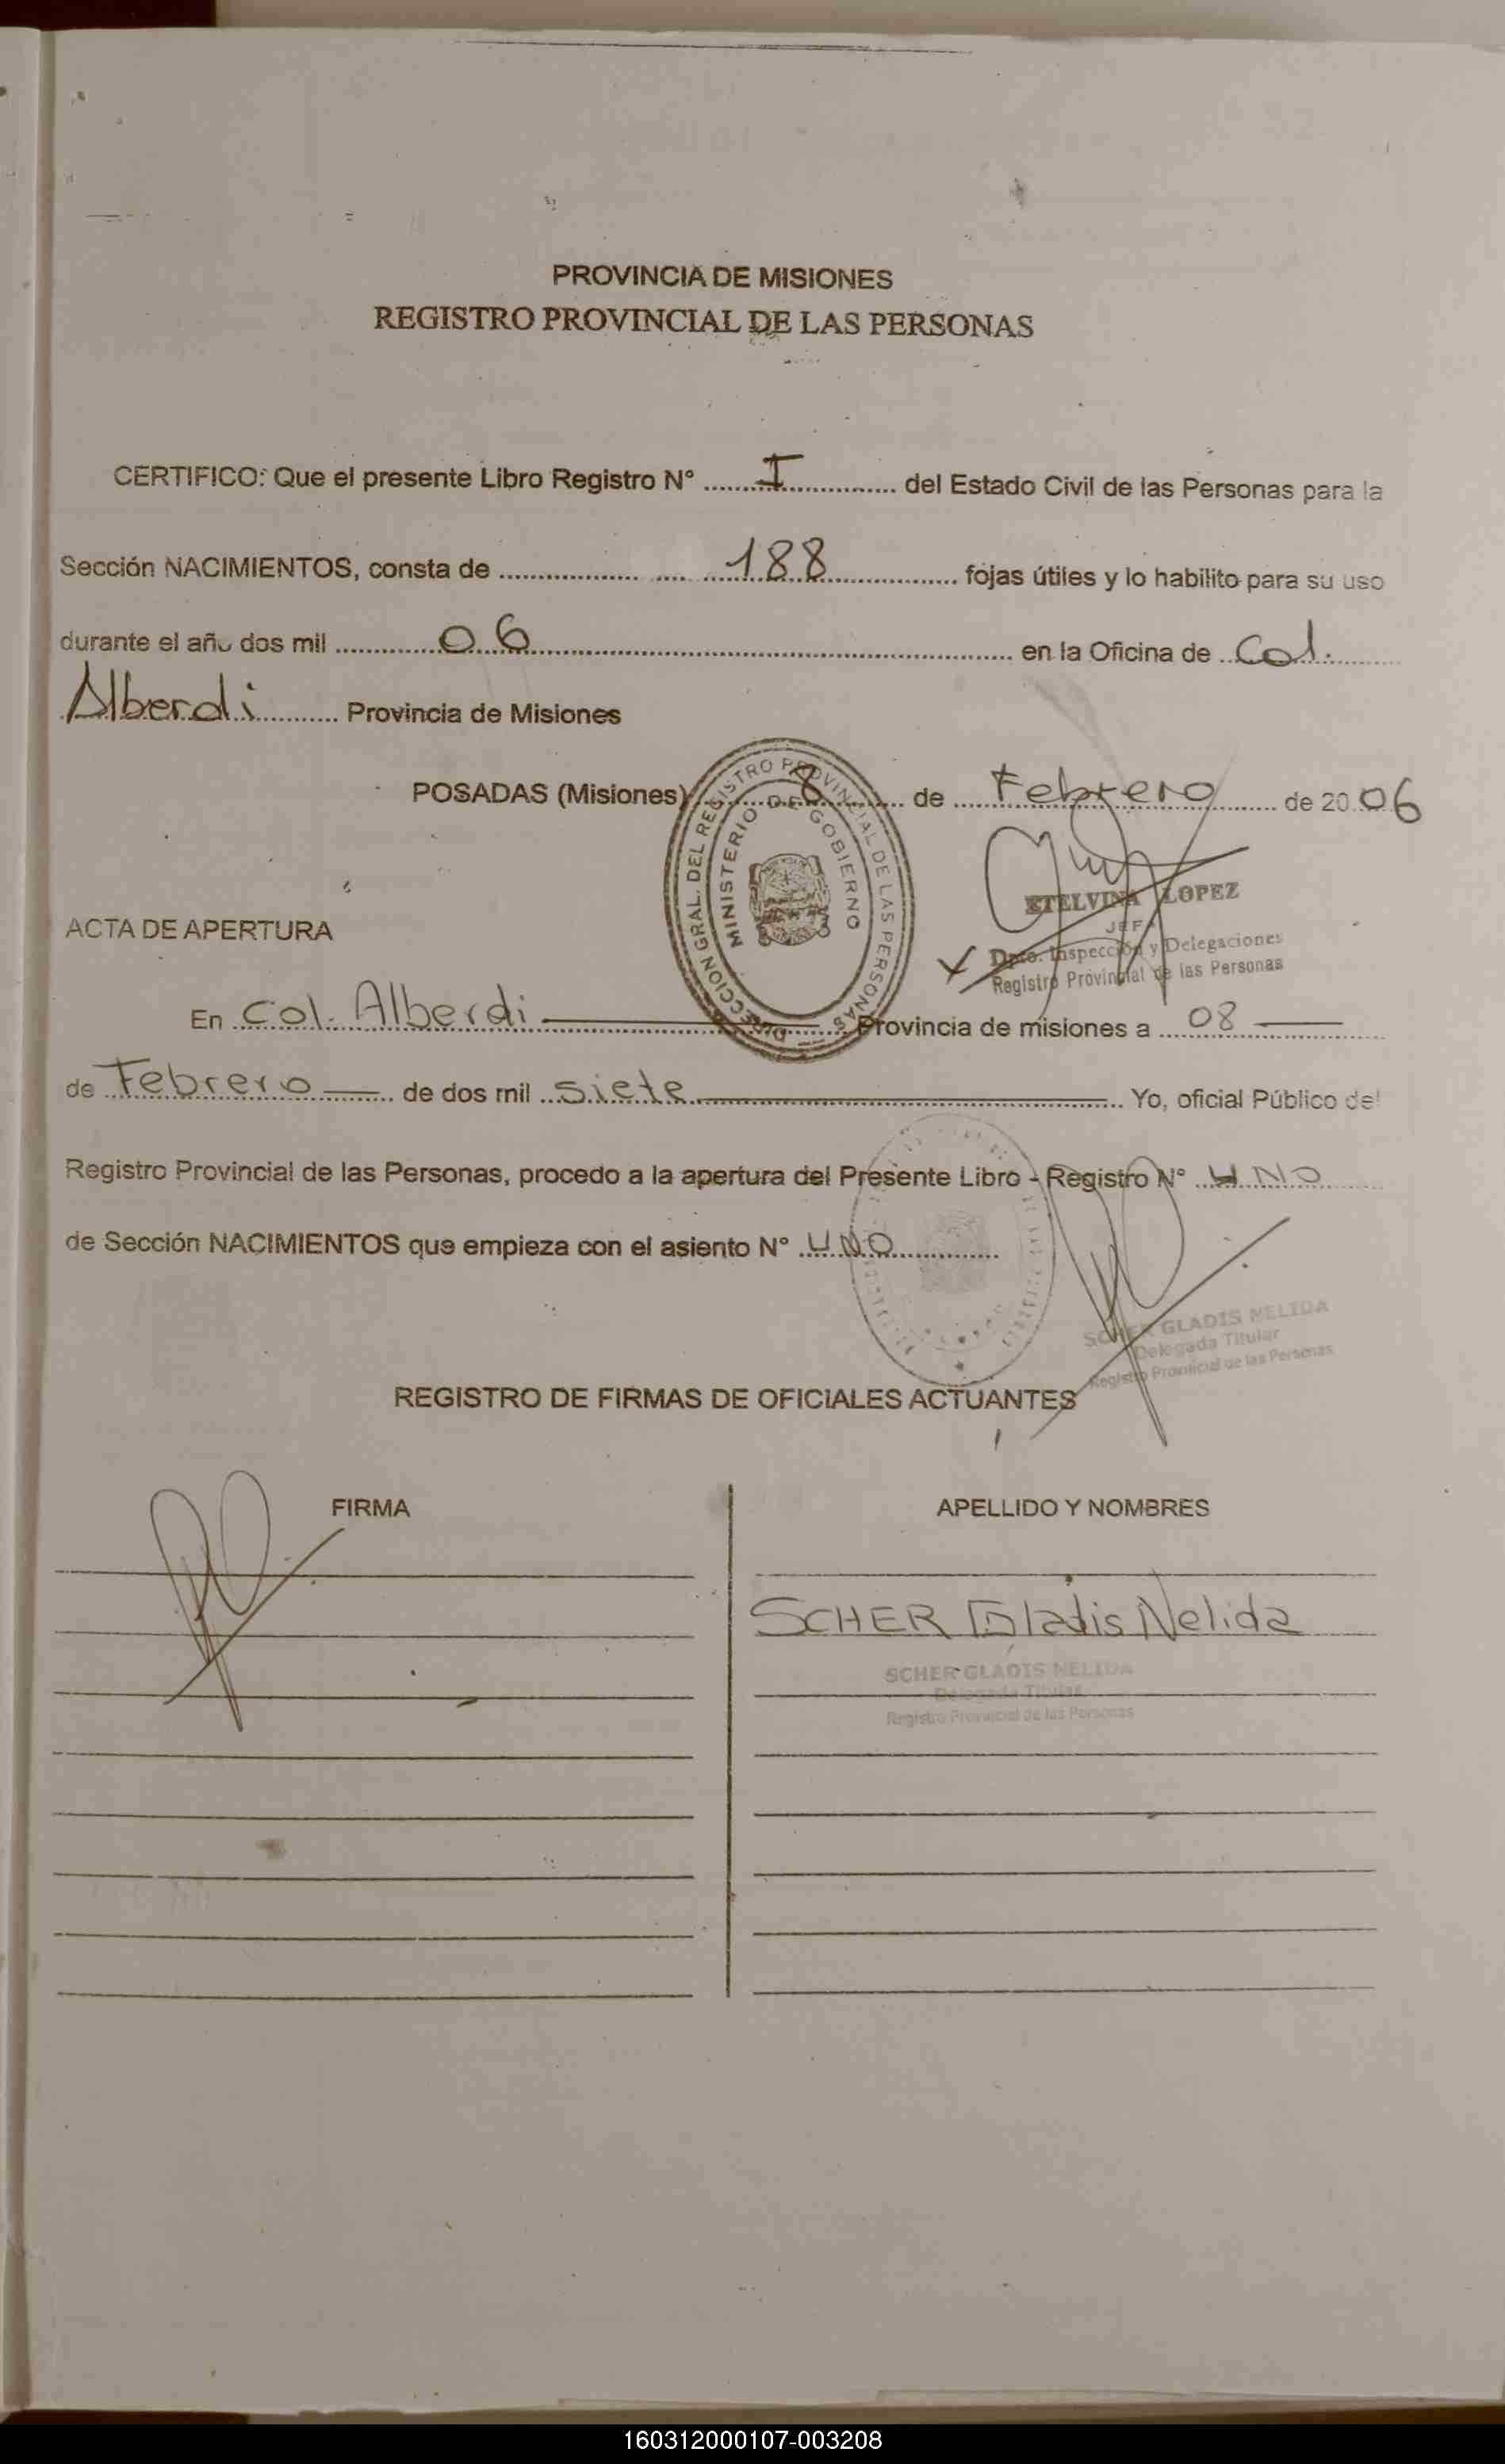 PROVINCIA DE MISIONES
REGISTRO PROVINCIAL DE LAS PERSONAS
CERTIFICO: Que el presente Libro Registro N° I del Estado Civil de las Personas para la
Sección NACIMIENTOS, consta de 188 fojas útiles y lo habilito para su uso
durante el año dos mil 06 en la Oficina de Col.
Alberdi Provincia de Misiones
POSADAS (Misiones) 8 de Febrero de 2006
DIRECCION GRAL. DEL REGISTRO PROVINCIAL DE LAS PERSONAS
MINISTERIO DE GOBIERNO
ETELVINA LOPEZ
JEFA
Dpto. Inspección y Delegaciones
Registro Provincial de las Personas
ACTA DE APERTURA
En Col. Alberdi Provincia de misiones a 08
de Febrero de dos mil siete Yo, oficial Público del
Registro Provincial de las Personas, procedo a la apertura del Presente Libro - Registro N° UNO
de Sección NACIMIENTOS que empieza con el asiento N° UNO
SCHER GLADIS NELIDA
Delegada Titular
Registro Provincial de las Personas
REGISTRO DE FIRMAS DE OFICIALES ACTUANTES
FIRMA
APELLIDO Y NOMBRES
SCHER Gladis Nelida
SCHER GLADIS NELIDA
Delegada Titular
Registro Provincial de las Personas
160312000107-003208